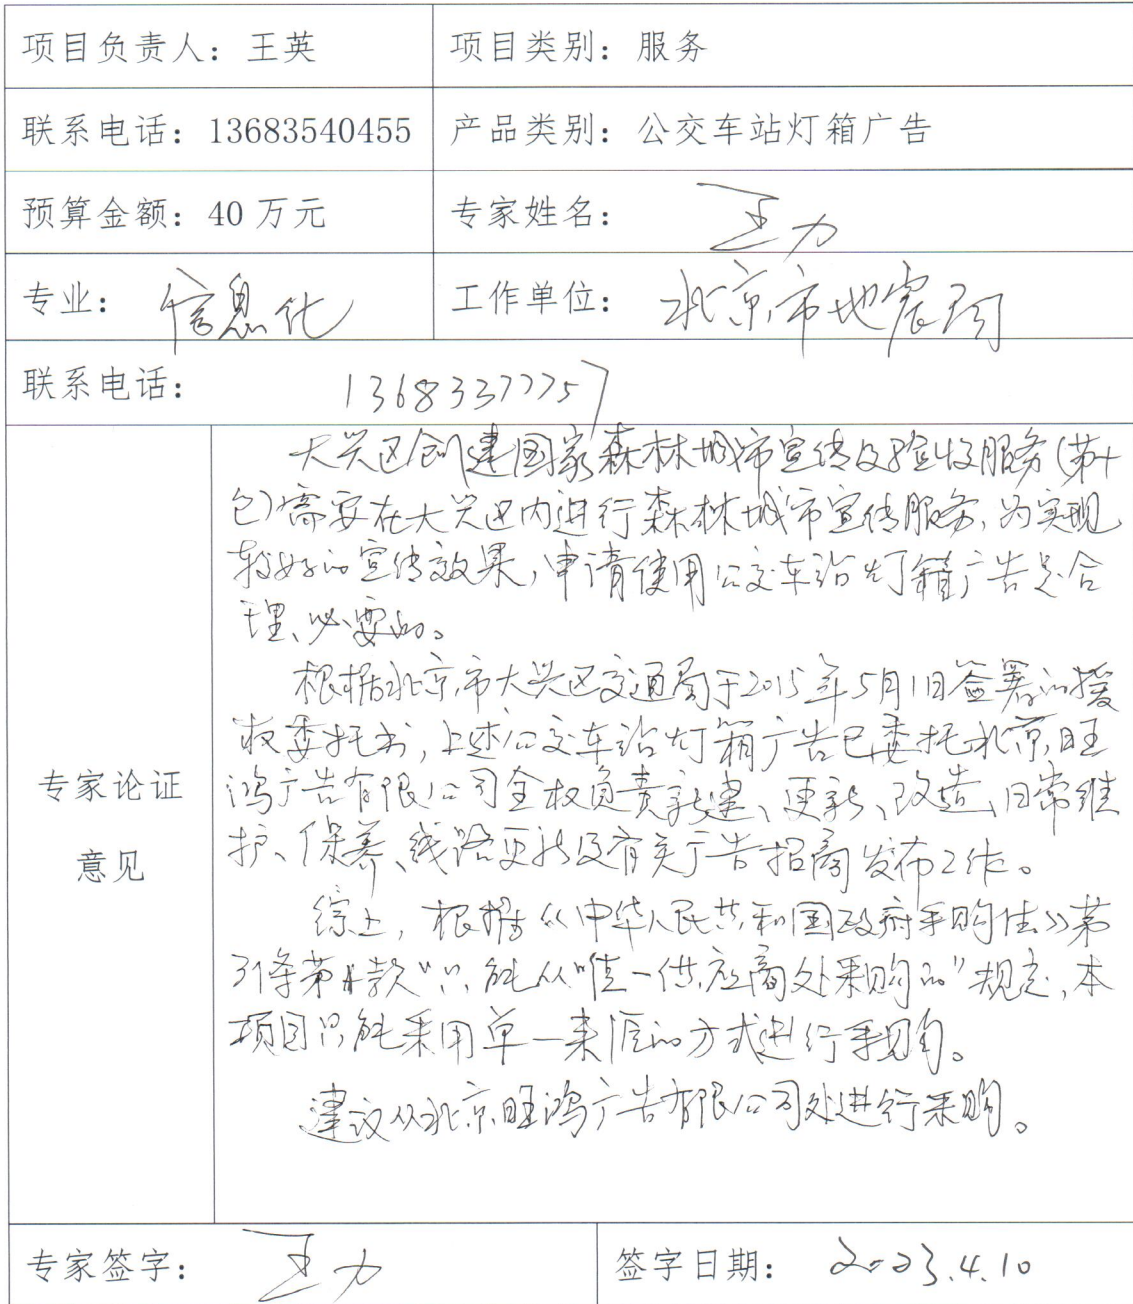 项目负责人：王英 项目类别：服务
联系电话：13683540455 产品类别：公交车站灯箱广告
预算金额：40万元 专家姓名：王力
专业：信息化 工作单位：北京市地震局
联系电话：13683377757
专家论证
意见
大兴区创建国家森林城市宣传及验收服务(第十
包)需要在大兴区内进行森林城市宣传服务，为实现
较好的宣传效果，申请使用公交车站灯箱广告是合
理、必要的。
根据北京市大兴区交通局于2015年5月1日签署的授
权委托书，上述公交车站灯箱广告已委托北京旺
鸿广告有限公司全权负责新建、更新、改造、日常维
护、保养、线路更新及有关广告招商发布工作。
综上，根据《中华人民共和国政府采购法》第
31条第1款“只能从唯一供应商处采购的”规定，本
项目只能采用单一来源的方式进行采购。
建议从北京旺鸿广告有限公司处进行采购。
专家签字：王力 签字日期：2023.4.10